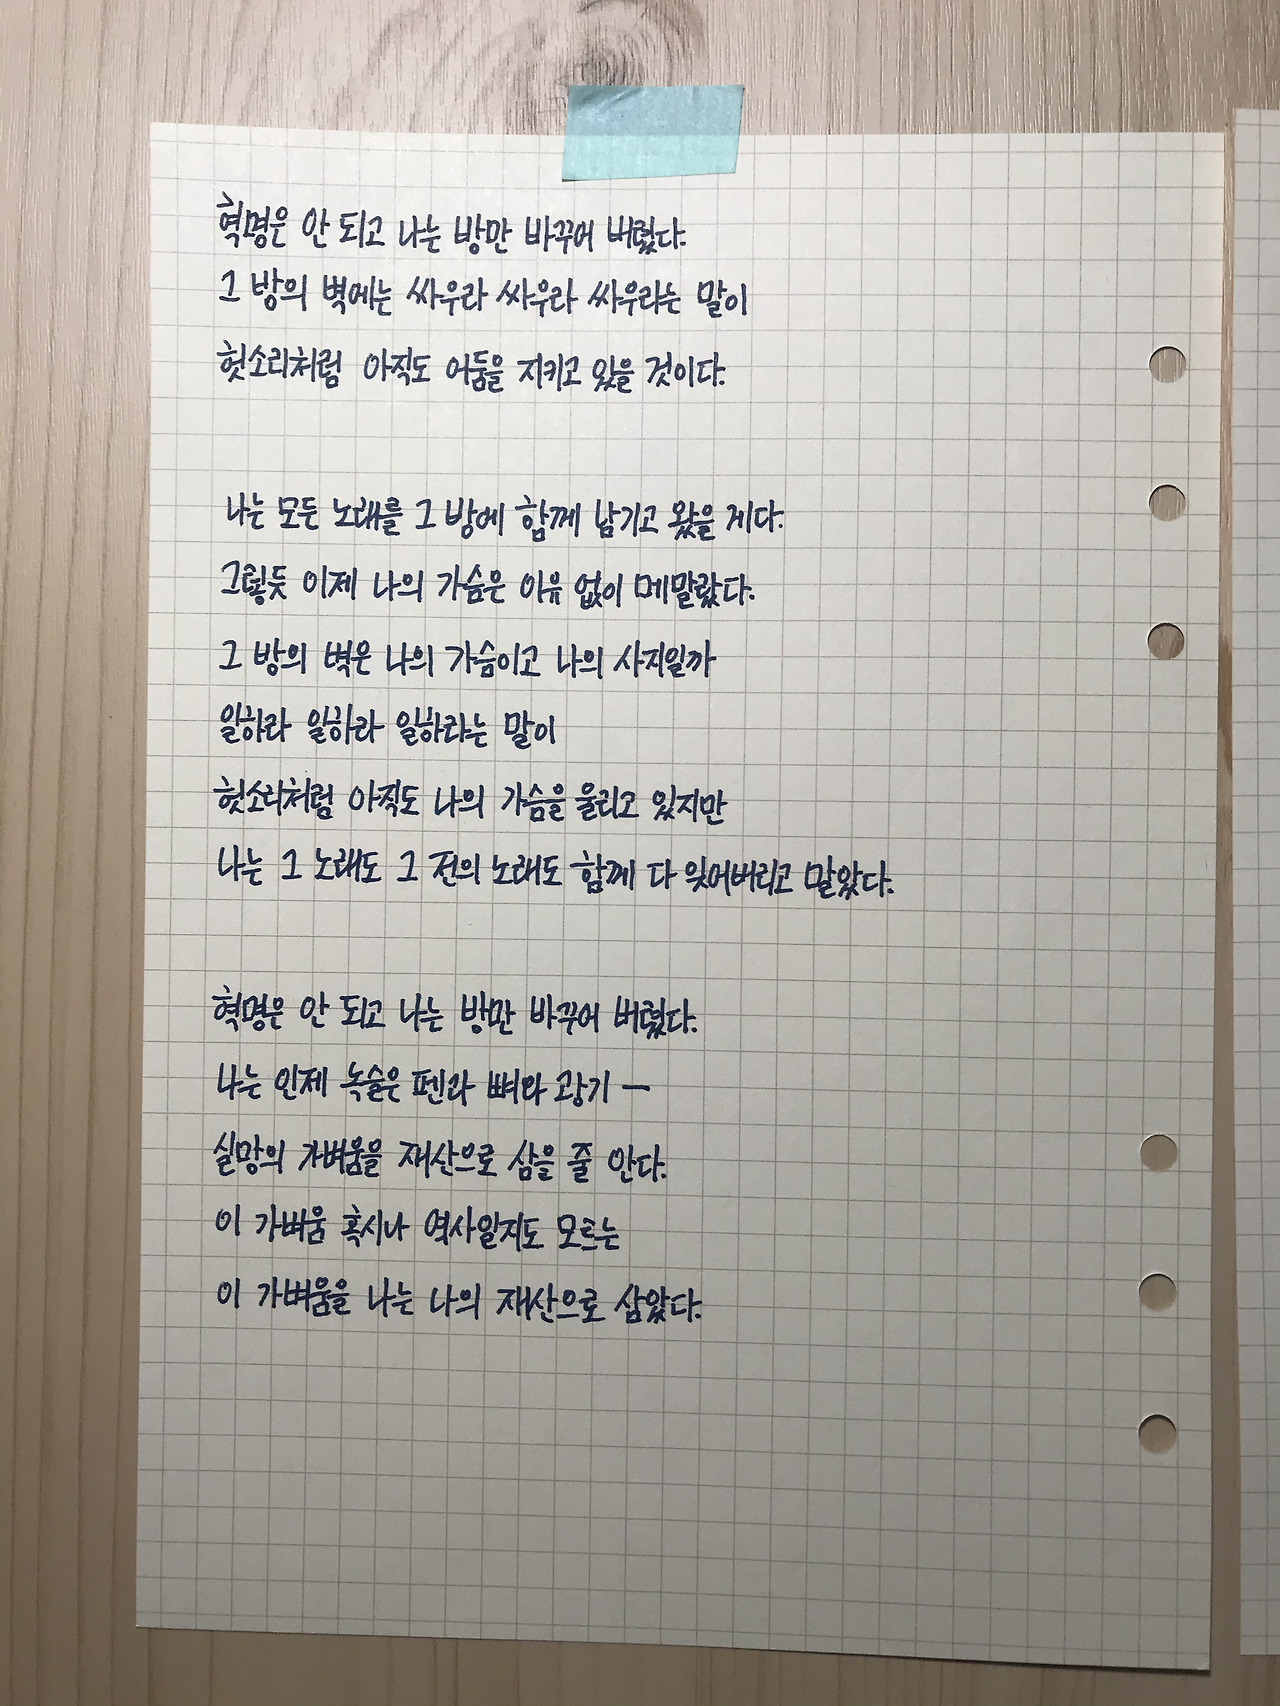 혁명은 안 되고 나는 방만 바꾸어 버렸다.
그 방의 벽에는 싸우라 싸우라 싸우라는 말이
헛소리처럼 아직도 어둠을 지키고 있을 것이다.
나는 모든 노래를 그 방에 함께 남기고 왔을 게다.
그렇듯 이제 나의 가슴은 이유 없이 메말랐다.
그 방의 벽은 나의 가슴이고 나의 사지일까
일하라 일하라 일하라는 말이
헛소리처럼 아직도 나의 가슴을 울리고 있지만
나는 그 노래도 그 전의 노래도 함께 다 잊어버리고 말았다.
혁명은 안 되고 나는 방만 바꾸어 버렸다.
나는 인제 녹슬은 펜과 뼈와 광기 —
실망의 가벼움을 재산으로 삼을 줄 안다.
이 가벼움 혹시나 역사일지도 모르는
이 가벼움을 나는 나의 재산으로 삼았다.